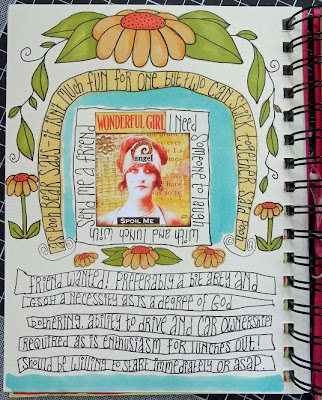 as pooh bear says - it isn't much fun for one but two can stick together, said Pooh
WONDERFUL GIRL
Send me a friend
I need someone to laugh
with and lunch with
angel
SPOIL ME
friend wanted! preferably a bit arty and
a necessity as is a degree of God
bothering, ability to drive and car ownership
required as is enthusiasm for lunches out!
should be willing to start immediately or asap.